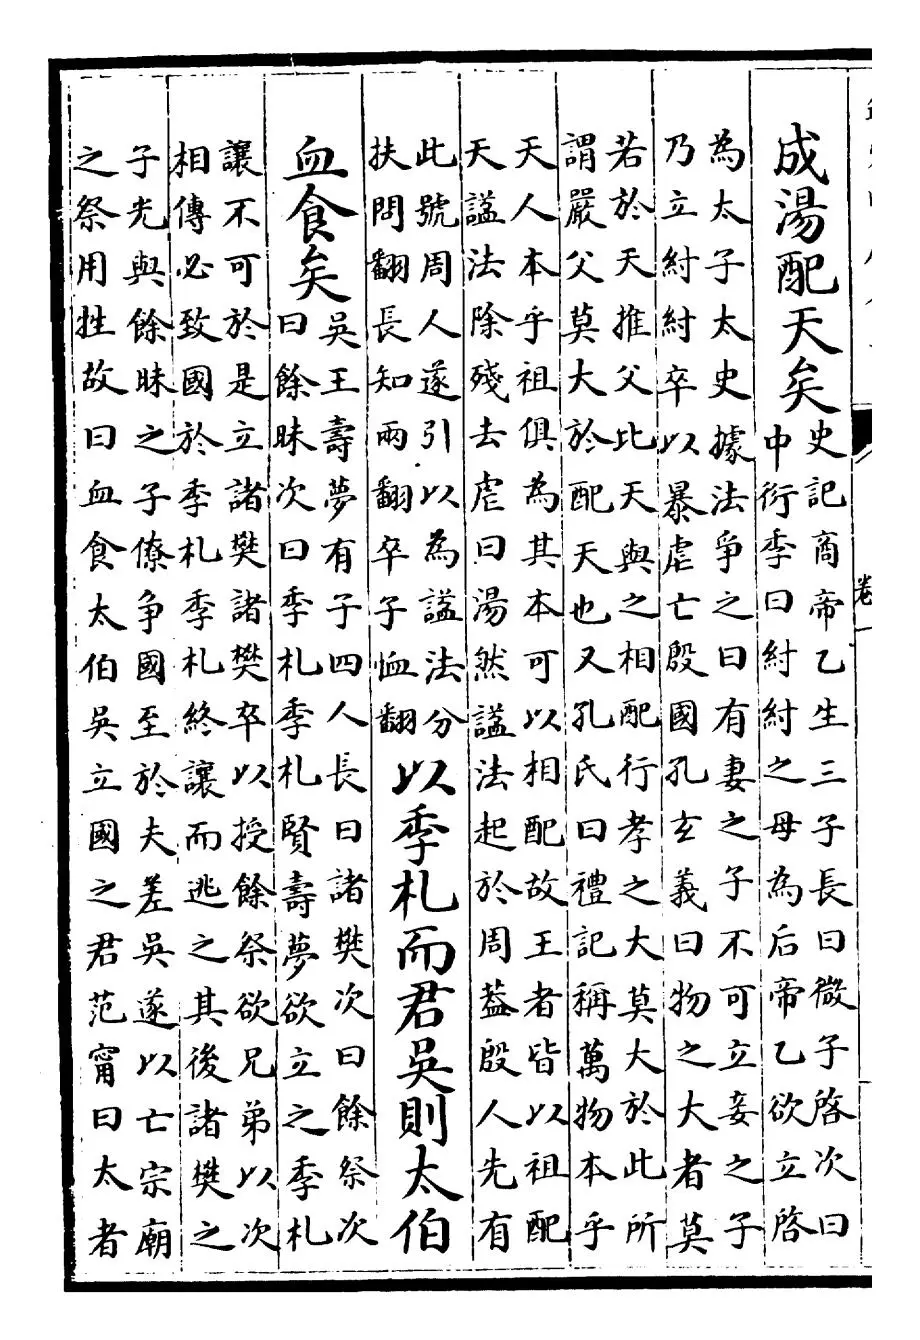 卷一
成湯配天矣
史記商帝乙生三子長曰微子啓次曰
中衍季曰紂紂之母為后帝乙欲立啓
為太子太史據法爭之曰有妻之子不可立妾之子
乃立紂紂卒以暴虐亡殷國孔玄義曰物之大者莫
若於天推父比天與之相配行孝之大莫大於此所
謂嚴父莫大於配天也又孔氏曰禮記稱萬物本乎
天人本乎祖俱為其本可以相配故王者皆以祖配
天謚法除殘去虐曰湯然謚法起於周蓋殷人先有
此號周人遂引以為謚法分
扶問翻長知兩翻卒子恤翻
以季札而君吳則太伯
血食矣
吳王壽夢有子四人長曰諸樊次曰餘祭次
曰餘眛次曰季札季札賢壽夢欲立之季札
讓不可於是立諸樊諸樊卒以授餘祭欲兄弟以次
相傳必致國於季札季札終讓而逃之其後諸樊之
子光與餘眛之子僚爭國至於夫差吳遂以亡宗廟
之祭用牲故曰血食太伯吳立國之君范甯曰太者